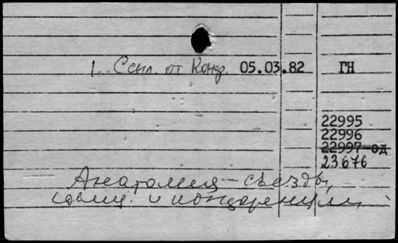 1. Ссыл. от Конф. 05.03.82 ГН
22995
22996
22997-од
23676
Анатомия - съезды,
совещ. и конференции